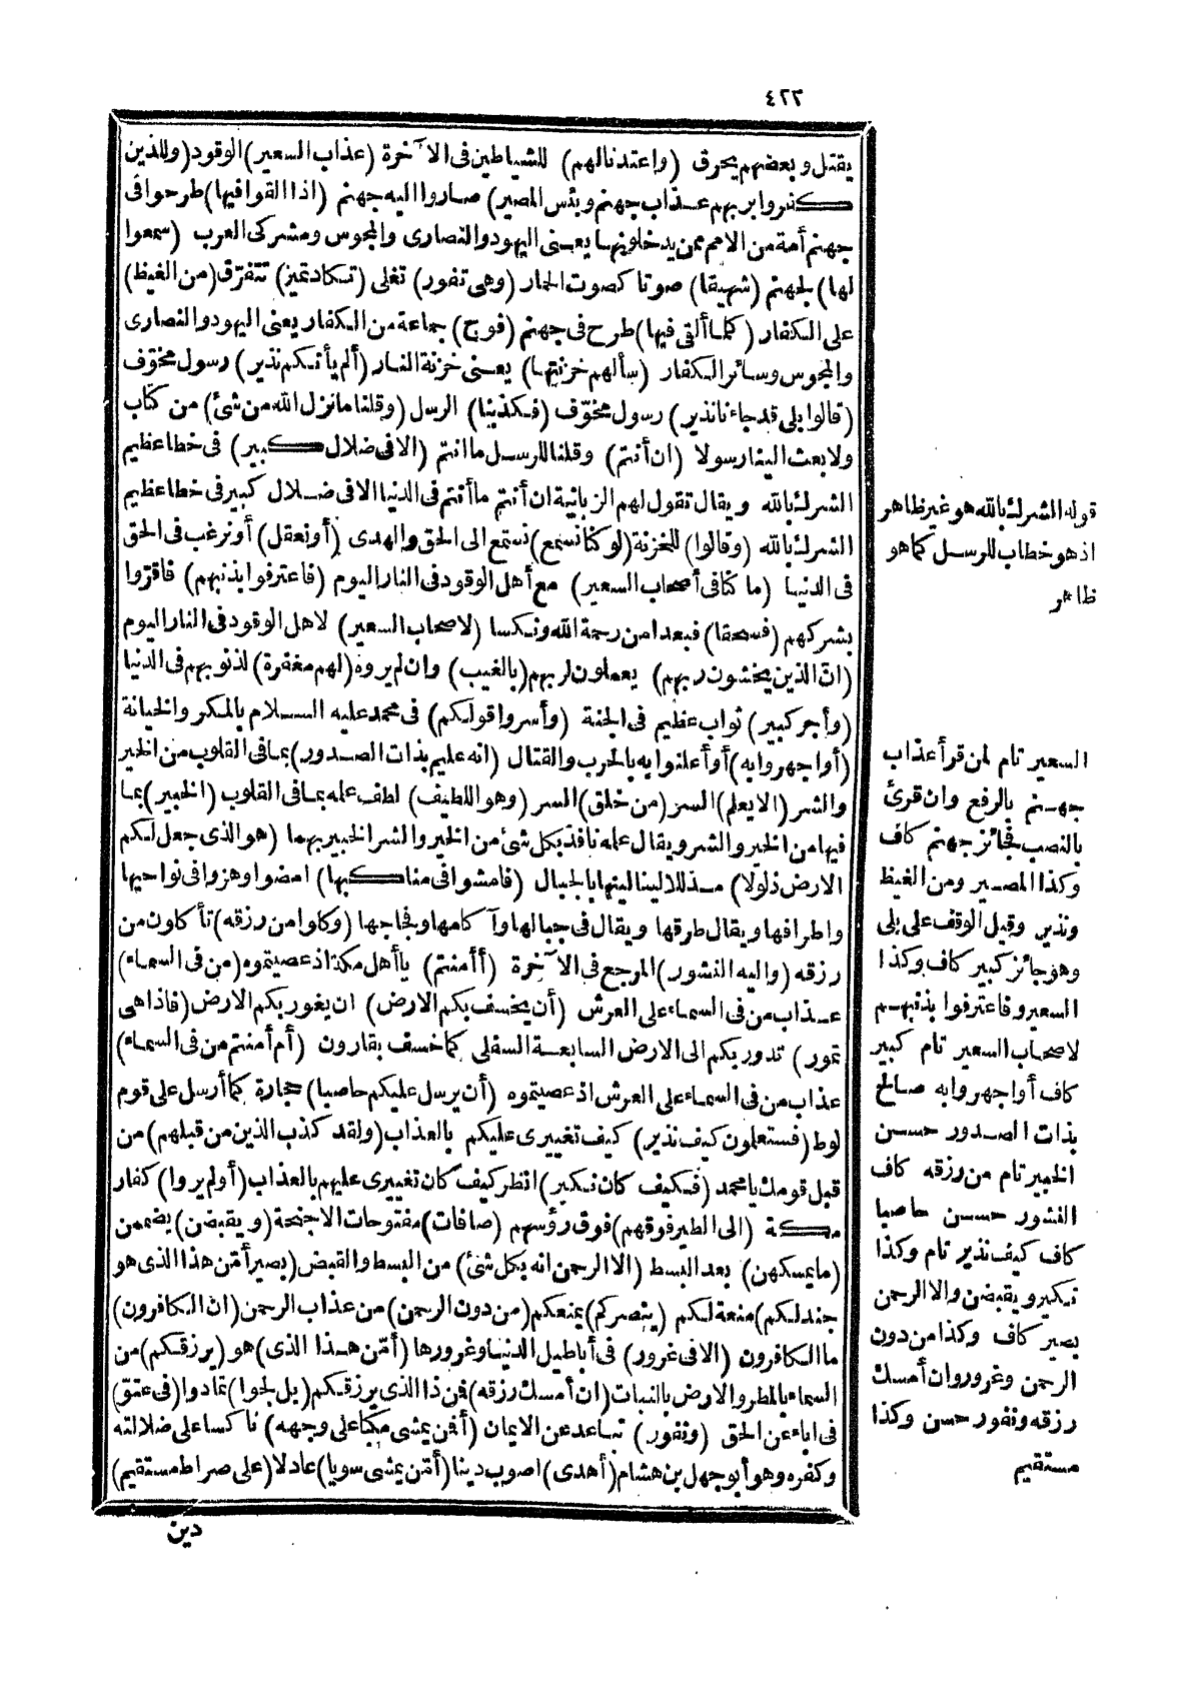 ٤٢٣
يقتل وبعضهم يحرق (واعتدنا لهم) للشياطين فى الآخرة (عذاب السعير) الوقود (وللذين
كفروا بربهم عذاب جهنم وبئس المصير) صاروا اليه جهنم (اذا القوا فيها) طرحوا فى
جهنم أمة من الامم ممن يدخلونها يعنى اليهود والنصارى والمجوس ومشركى العرب (سمعوا
لها) لجهنم (شهيقا) صوتا كصوت الحمار (وهى تفور) تغلى (تكاد تميز) تتفرّق (من الغيظ)
على الكفار (كلما ألقى فيها) طرح فى جهنم (فوج) جماعة من الكفار يعنى اليهود والنصارى
والمجوس وسائر الكفار (سألهم خزنتها) يعنى خزنة النار (ألم يأتكم نذير) رسول مخوّف
(قالوا بلى قد جاءنا نذير) رسول مخوّف (فكذبنا) الرسل (وقلنا ما نزل الله من شئ) من كتاب
ولا بعث الينا رسولا (ان أنتم) وقلنا للرسل ما انتم (الا فى ضلال كبير) فى خطا عظيم
الشرك بالله ويقال تقول لهم الزبانية ان أنتم ما أنتم فى الدنيا الا فى ضلال كبير فى خطا عظيم
الشرك بالله (وقالوا) للخزنة (لو كنا نسمع) نستمع الى الحق والهدى (أو نعقل) أو نرغب فى الحق
فى الدنيا (ما كنا فى أصحاب السعير) مع أهل الوقود فى النار اليوم (فاعترفوا بذنبهم) فاقرّوا
بشركهم (فسحقا) فبعدا من رحمة الله ونكسا (لاصحاب السعير) لاهل الوقود فى النار اليوم
(انّ الذين يخشون ربهم) يعملون لربهم (بالغيب) وان لم يروه (لهم مغفرة) لذنوبهم فى الدنيا
(وأجر كبير) ثواب عظيم فى الجنة (وأسروا قولكم) فى محمد عليه السلام بالمكر والخيانة
(أو اجهروا به) أو أعلنوا به بالحرب والقتال (انه عليم بذات الصدور) بما فى القلوب من الخير
والشر (الا يعلم) السر (من خلق) السر (وهو اللطيف) لطف علمه بما فى القلوب (الخبير) بما
فيها من الخير والشر ويقال علمه نافذ بكل شئ من الخير والشر الخبير بهما (هو الذى جعل لكم
الارض ذلولا) مذللا لينا لينها بالجبال (فامشوا فى مناكبها) امضوا وهزوا فى نواحيها
واطرافها ويقال طرقها ويقال فى جبالها وآكامها وفجاجها (وكلوا من رزقه) تأكلون من
رزقه (واليه النشور) المرجع فى الآخرة (أأمنتم) يا أهل مكة اذ عصيتموه (من فى السماء)
عذاب من فى السماء على العرش (أن يخسف بكم الارض) ان يغور بكم الارض (فاذا هى
تمور) تدور بكم الى الارض السابعة السفلى كما خسف بقارون (أم أمنتم من فى السماء)
عذاب من فى السماء على العرش اذ عصيتموه (أن يرسل عليكم حاصبا) حجارة كما أرسل على قوم
لوط (فستعلمون كيف نذير) كيف تغييرى عليكم بالعذاب (ولقد كذب الذين من قبلهم) من
قبل قومك يا محمد (فكيف كان نكير) انظر كيف كان تغييرى عليهم بالعذاب (أولم يروا) كفار
مكة (الى الطير فوقهم) فوق رؤسهم (صافات) مفتوحات الاجنحة (ويقبضن) يضممن
(ما يمسكهن) بعد البسط (الا الرحمن انه بكل شئ) من البسط والقبض (بصير أمّن هذا الذى هو
جند لكم) منعة لكم (ينصركم) يمنعكم (من دون الرحمن) من عذاب الرحمن (ان الكافرون)
ما الكافرون (الا فى غرور) فى أباطيل الدنيا وغرورها (أمّن هذا الذى) هو (يرزقكم) من
السماء بالمطر والارض بالنبات (ان أمسك رزقه) فمن ذا الذى يرزقكم (بل لجوا) تمادوا (فى عتوّ)
فى اباء عن الحق (ونفور) تباعد عن الايمان (أفمن يمشى مكبّا على وجهه) ناكسا على ضلالته
وكفره وهو أبو جهل بن هشام (أهدى) اصوب دينا (أمّن يمشى سويا) عادلا (على صراط مستقيم)
دين
قوله الشرك بالله هو غير ظاهر
اذ هو خطاب للرسل كما هو
ظاهر
السعير تام لمن قرأ عذاب
جهنم بالرفع وان قرئ
بالنصب فجائز جهنم كاف
وكذا المصير ومن الغيظ
ونذير وقيل الوقف على بلى
وهو جائز كبير كاف وكذا
السعير وفاعترفوا بذنبهم
لاصحاب السعير تام كبير
كاف أو اجهروا به صالح
بذات الصدور حسن
الخبير تام من رزقه كاف
النشور حسن حاصبا
كاف كيف نذير تام وكذا
نكير ويقبضن والا الرحمن
بصير كاف وكذا من دون
الرحمن وغرور وان أمسك
رزقه ونفور حسن وكذا
مستقيم